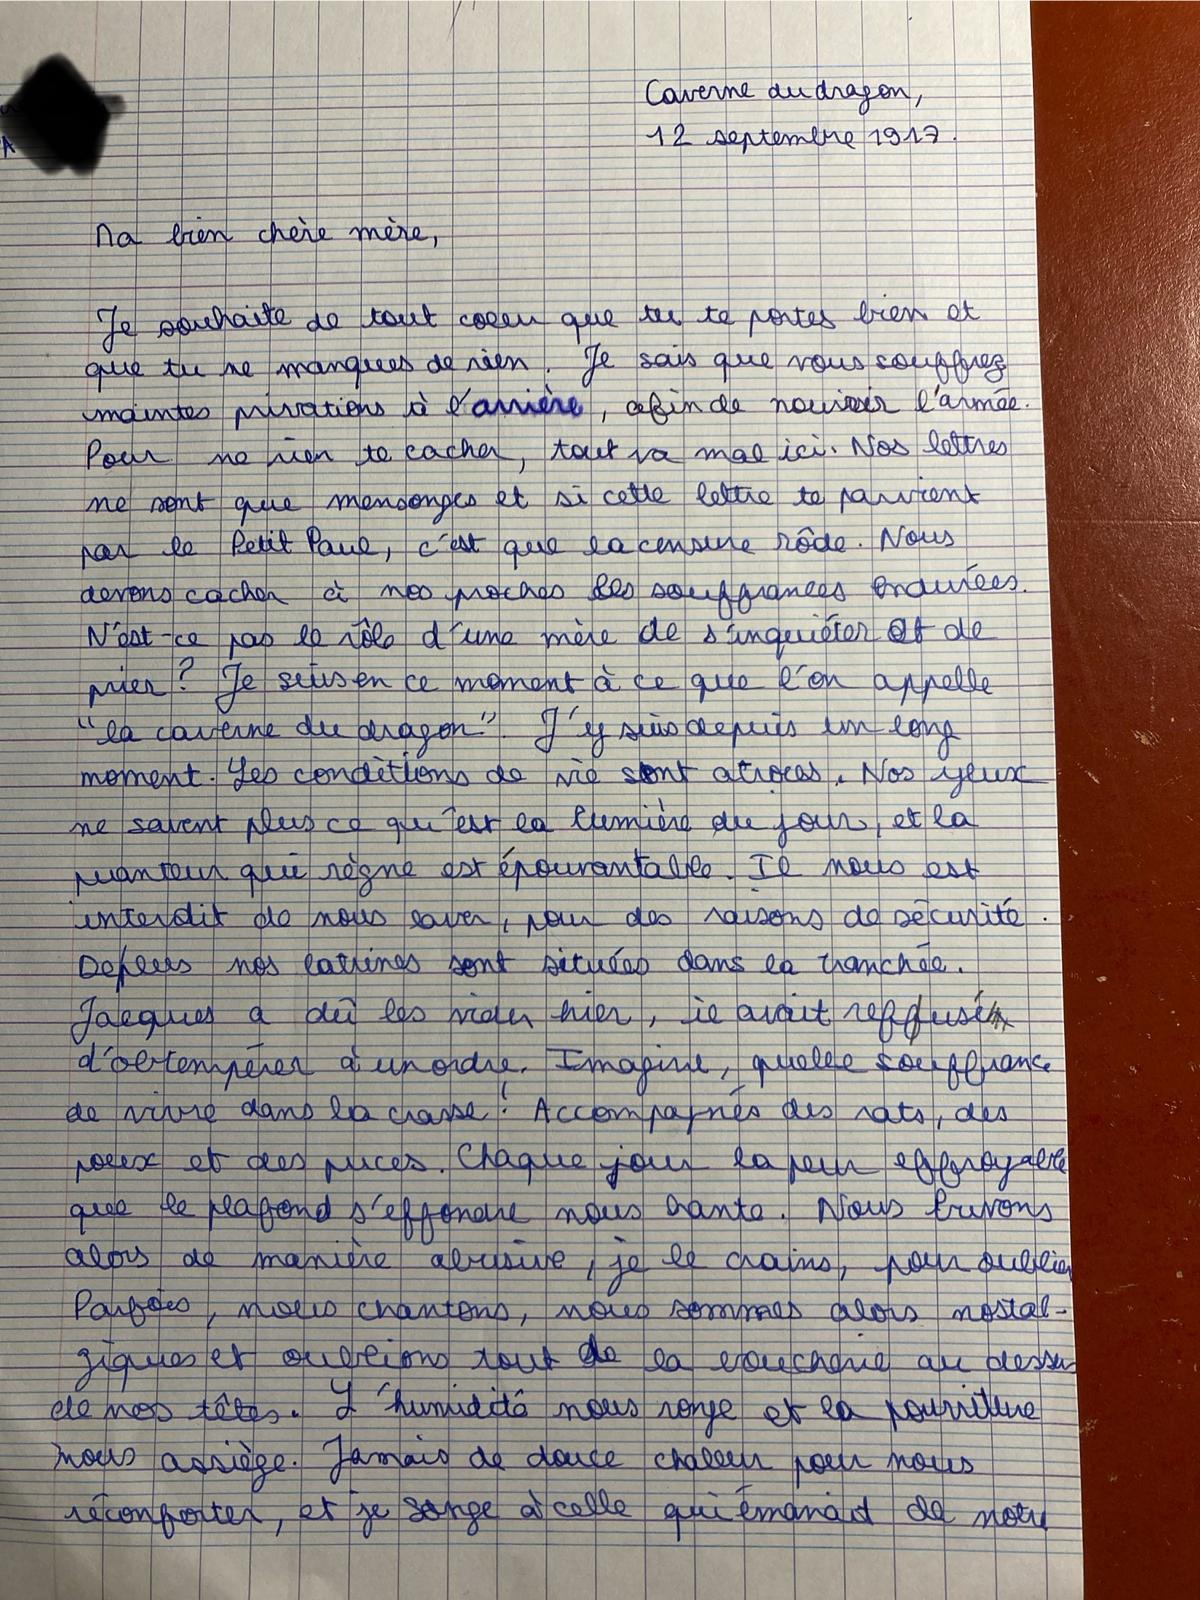 Caverne du dragon,
12 septembre 1917.
Ma bien chère mère,
Je souhaite de tout coeur que tu te portes bien et
que tu ne manques de rien. Je sais que vous souffrez
maintes privations à l'arrière, afin de nourrir l'armée.
Pour ne rien te cacher, tout va mal ici. Nos lettres
ne sont que mensonges et si cette lettre te parvient
par le Petit Paul, c'est que la censure rôde. Nous
devons cacher à nos proches les souffrances endurées.
N'est-ce pas le rôle d'une mère de s'inquiéter et de
prier ? Je suis en ce moment à ce que l'on appelle
"la caverne du dragon". J'y suis depuis un long
moment. Les conditions de vie sont atroces. Nos yeux
ne savent plus ce qu'est la lumière du jour, et la
puanteur qui règne est épouvantable. Il nous est
interdit de nous laver, pour des raisons de sécurité.
Depuis nos latrines sont situées dans la tranchée.
Jacques a dû les vider hier, il avait reffusé
d'obtempérer à un ordre. Imagine, quelle souffrance
de vivre dans la crasse ! Accompagnés des rats, des
poux et des puces. Chaque jour la peur effroyable
que le plafond s'effondre nous hante. Nous buvons
alors de manière abusive, je le crains, pour oublier
Parfois, nous chantons, nous sommes alors nostal-
giques et oublions tout de la boucherie au dessus
de nos têtes. L'humidité nous ronge et la pourriture
nous assiège. Jamais de douce chaleur pour nous
réconforter, et je songe à celle qui émanait de notre